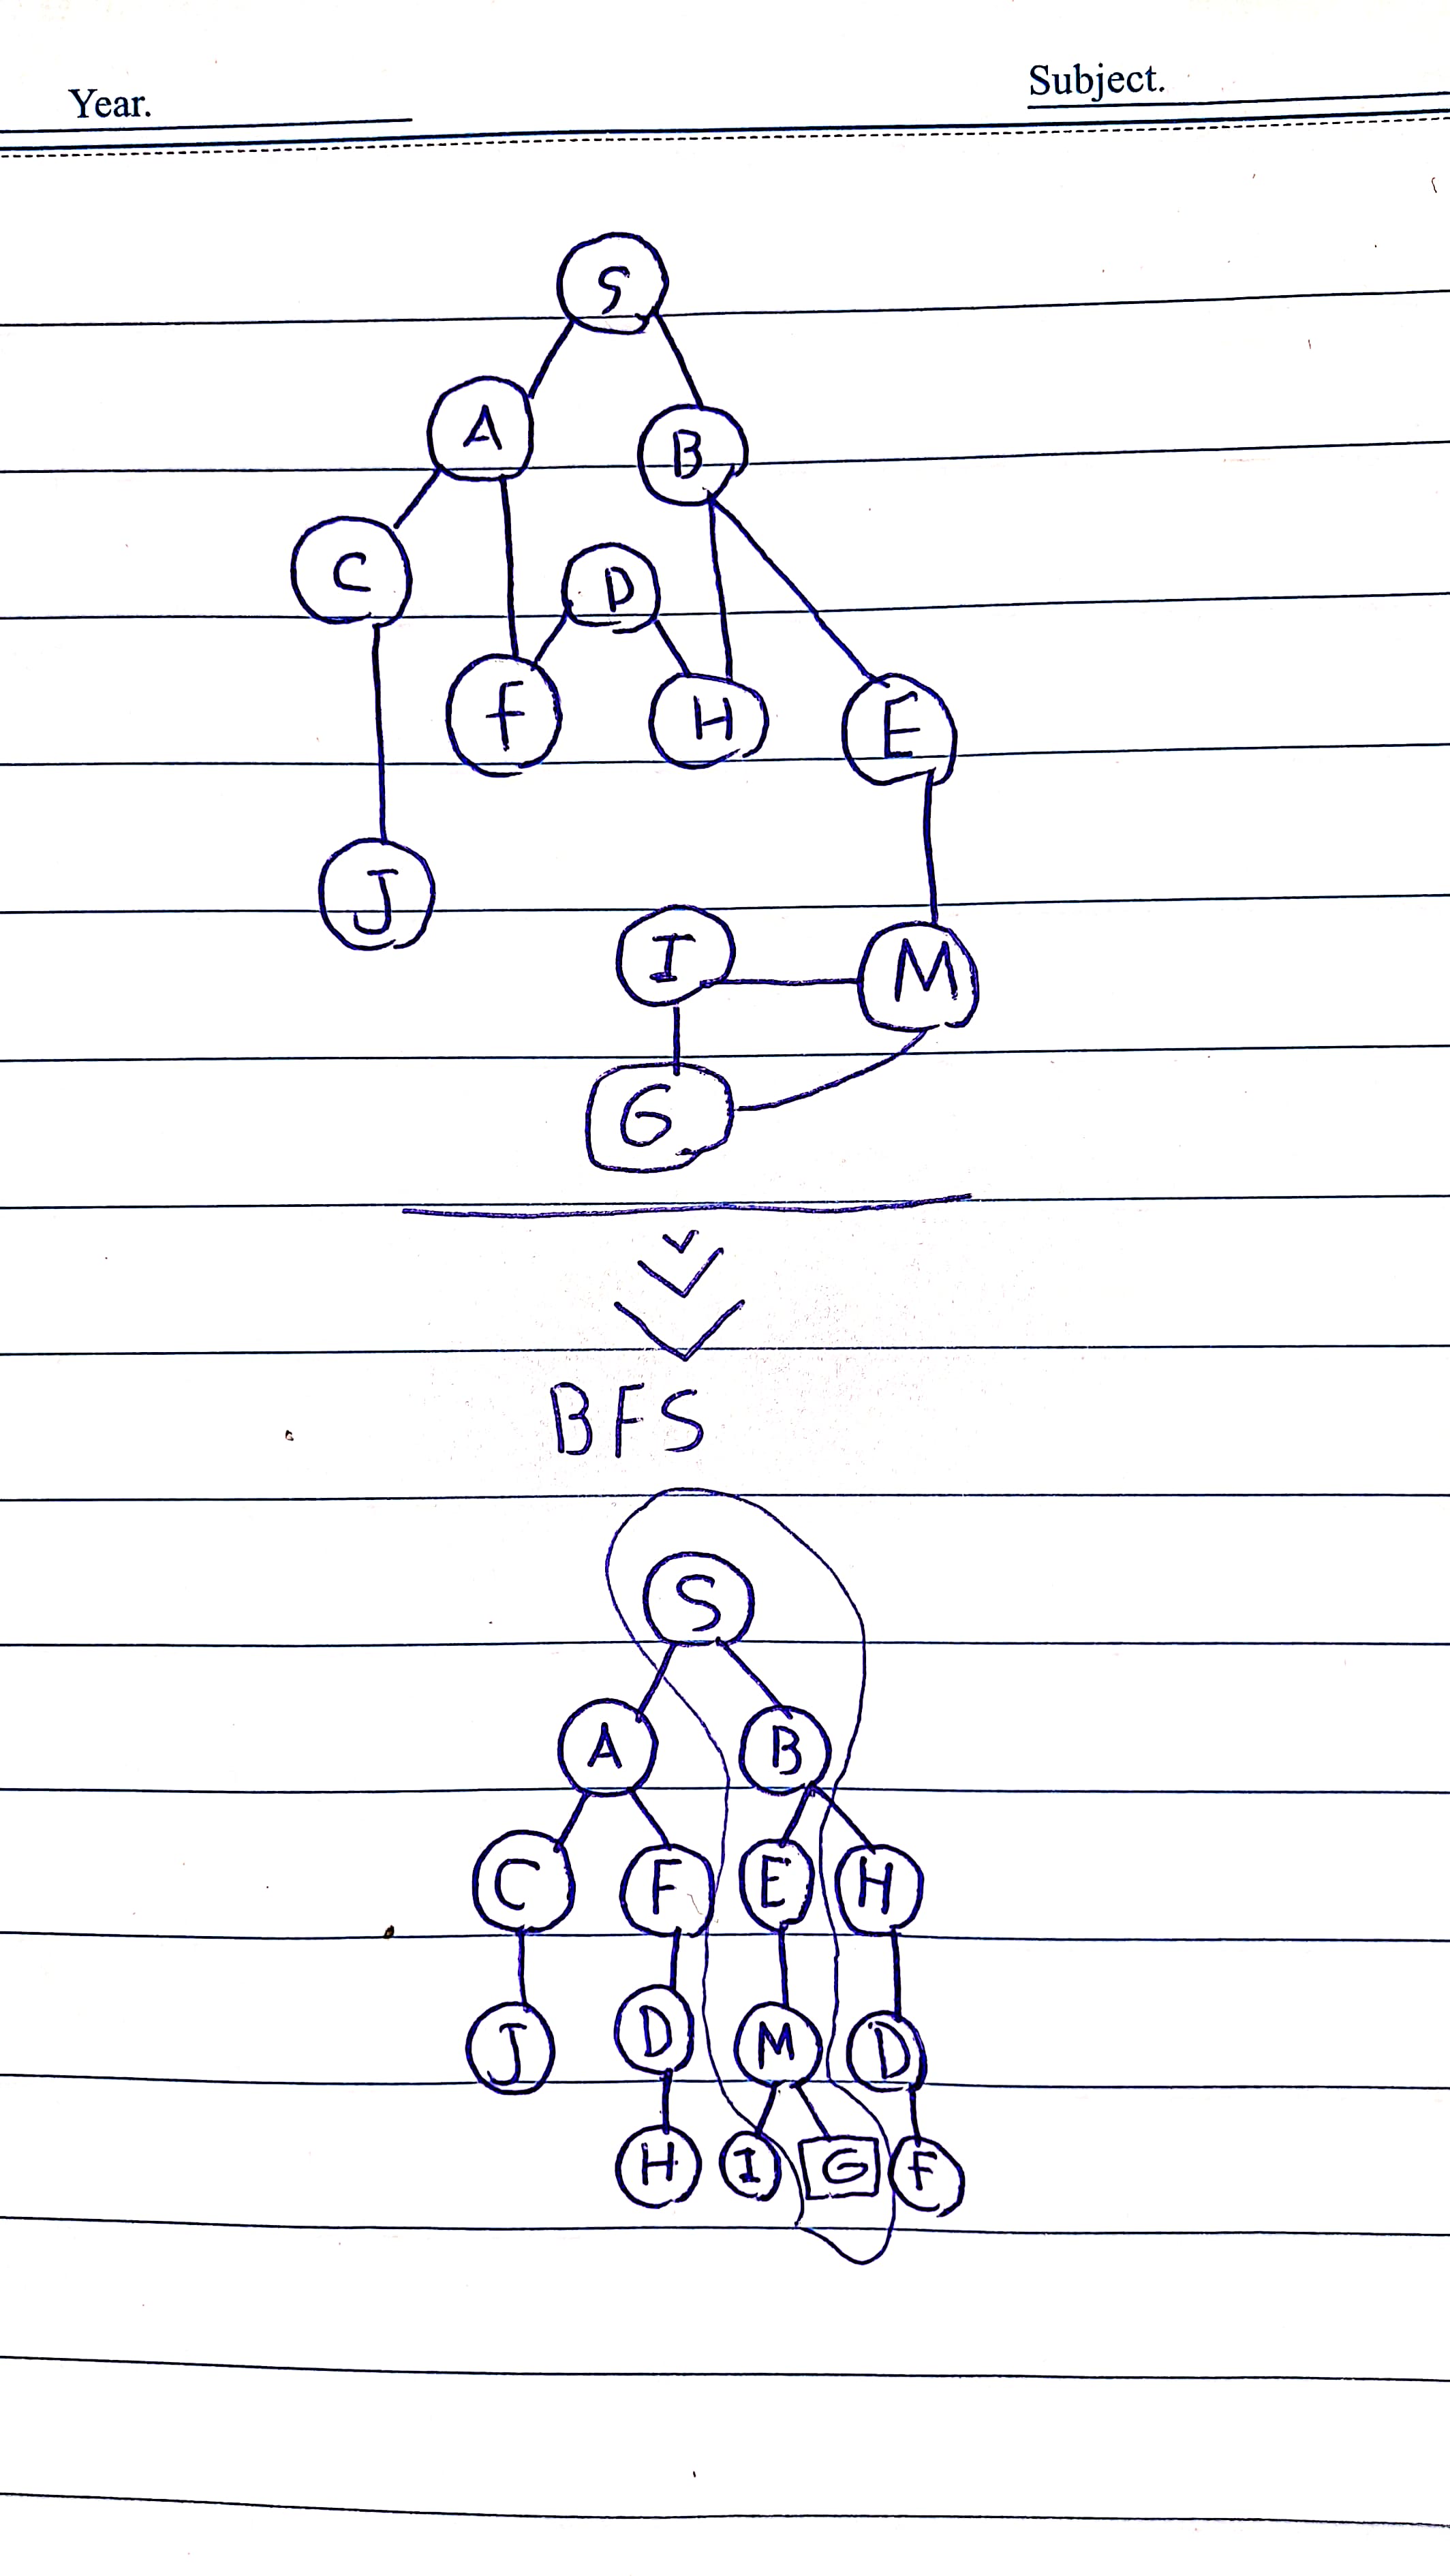 Year. Subject.
S
A B
C D
f H E
J I M
G
BFS
S
A B
C F E H
J D M D
H I G F